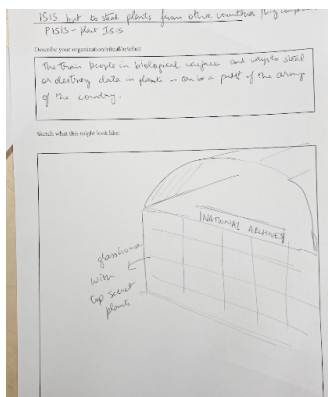 ISIS but to steal plants from other countries
PISIS - plant ISIS
Describe your organization/ritual/artefact
The train people in biological warfare and ways to steal
or destroy data in plants - can be a part of the army
of the country.
Sketch what this might look like:
NATIONAL ARCHIVES
glasshouse
with
top secret
plants